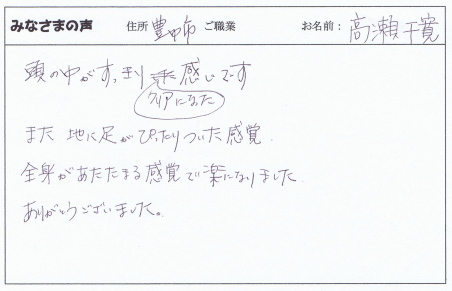 みなさまの声 住所 豊中市 ご職業 お名前： 高瀬千寛
頭の中がすっきり 感じです
クリアになった
また 地に足がぴったりついた感覚
全身があたたまる感覚で楽になりました
ありがとうございました。